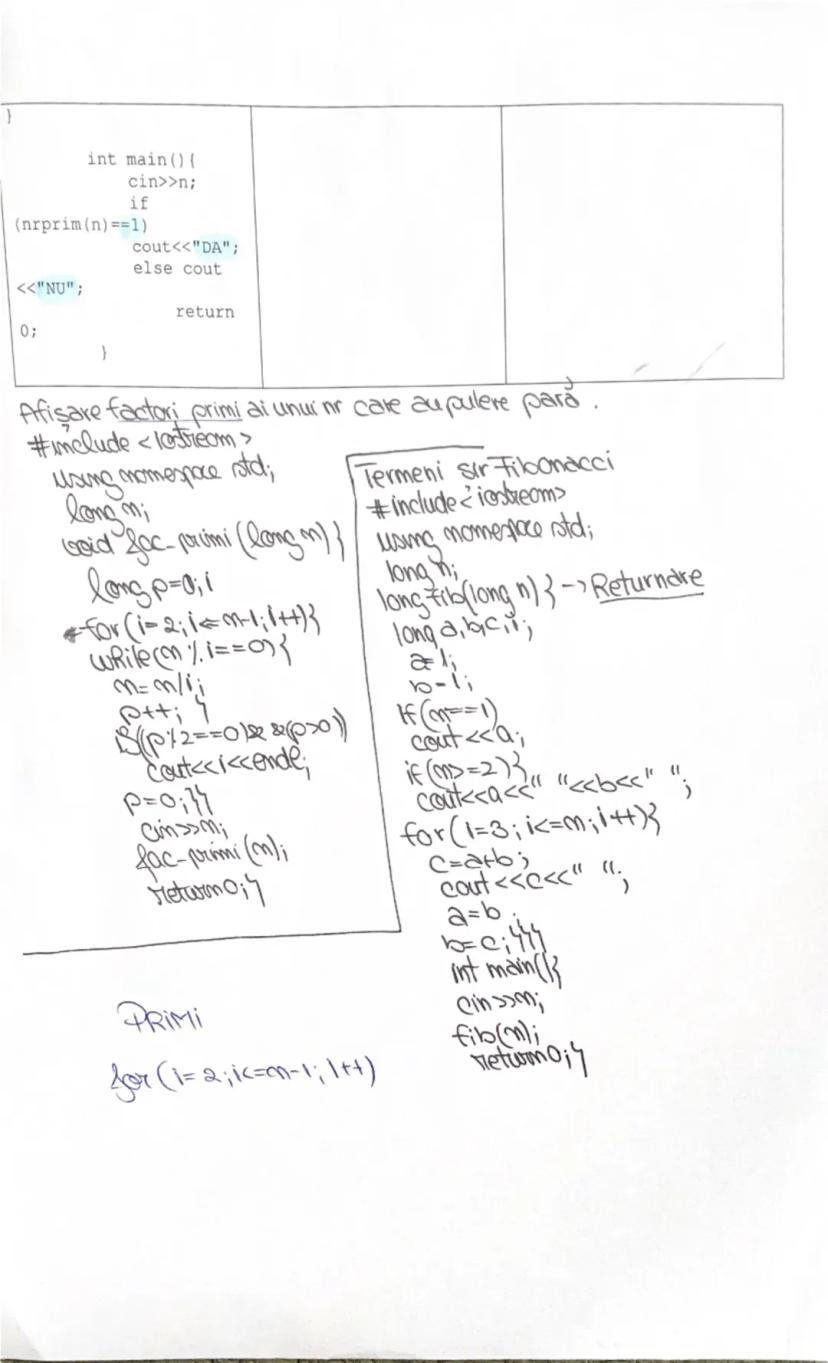 }
int main(){
cin>>n;
if
(nrprim(n)==1)
cout<<"DA";
else cout
<<"NU";
return
0;
}
Afișare factori primi ai unui nr care au putere pară.
#include <iostream>
using namespace std;
long n;
void fac-primi (long n) {
long p=0, i
for (i=2; i<=n-1; i++){
while(n % i==0){
n=n/i;
p++; }
if((p%2==0)&&(p>0))
cout<<i<<endl;
p=0;}}
cin>>n;
fac-primi (n);
return 0;}
Termeni șir Fibonacci
#include <iostream>
using namespace std;
long n;
long fib(long n) { -> Returnare
long a,b,c,i;
a=1;
b=1;
if (n==1)
cout <<a;
if (n>=2){
cout<<a<<" "<<b<<" ";
for (i=3; i<=n; i++){
c=a+b;
cout <<c<<" ";
a=b;
b=c;}}}
int main(){
cin>>n;
fib(n);
return 0;}
PRIMI
for (i=2; i<=n-1; i++)